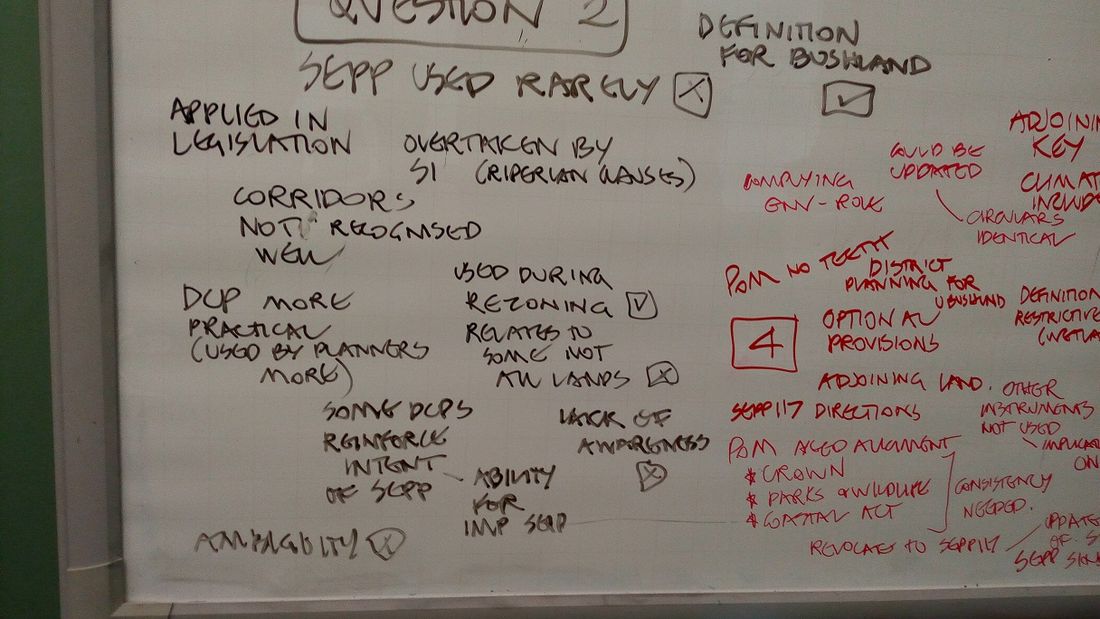 QUESTION 2
SEPP USED RARELY
DEFINITION
FOR BUSHLAND
APPLIED IN
LEGISLATION
OVERTAKEN BY
SI (RIPERIAN CLAUSES)
CORRIDORS
NOT RECOGNISED
WELL
DCP MORE
PRACTICAL
(USED BY PLANNERS
MORE)
USED DURING
REZONING
RELATES TO
SOME NOT
ALL LANDS
SOME DCPS
REINFORCE
INTENT
OF SEPP
ABILITY
FOR
IMP SEPP
LACK OF
AWARENESS
AMBIGUITY
COMPLYING
ENV-
COULD BE
UPDATED
CIRCULARS
IDENTICAL
ADJOININ
KEY
CLIMAT
INCLUD
POM NO TEETH
DISTRICT
PLANNING FOR
UBUSHLAND
DEFINITION
RESTRICTIVE
(WETLA
4
OPTIONAL
PROVISIONS
ADJOINING LAND.
SEPP 117 DIRECTIONS
OTHER
INSTRUMENTS
NOT USED
ON
POM ALIGNMENT
* CROWN
* PARKS & WILDLIFE
* COASTAL ACT
CONSISTENCY
NEEDED.
TO SEPP 117
UPDATE
OF S
SEPP